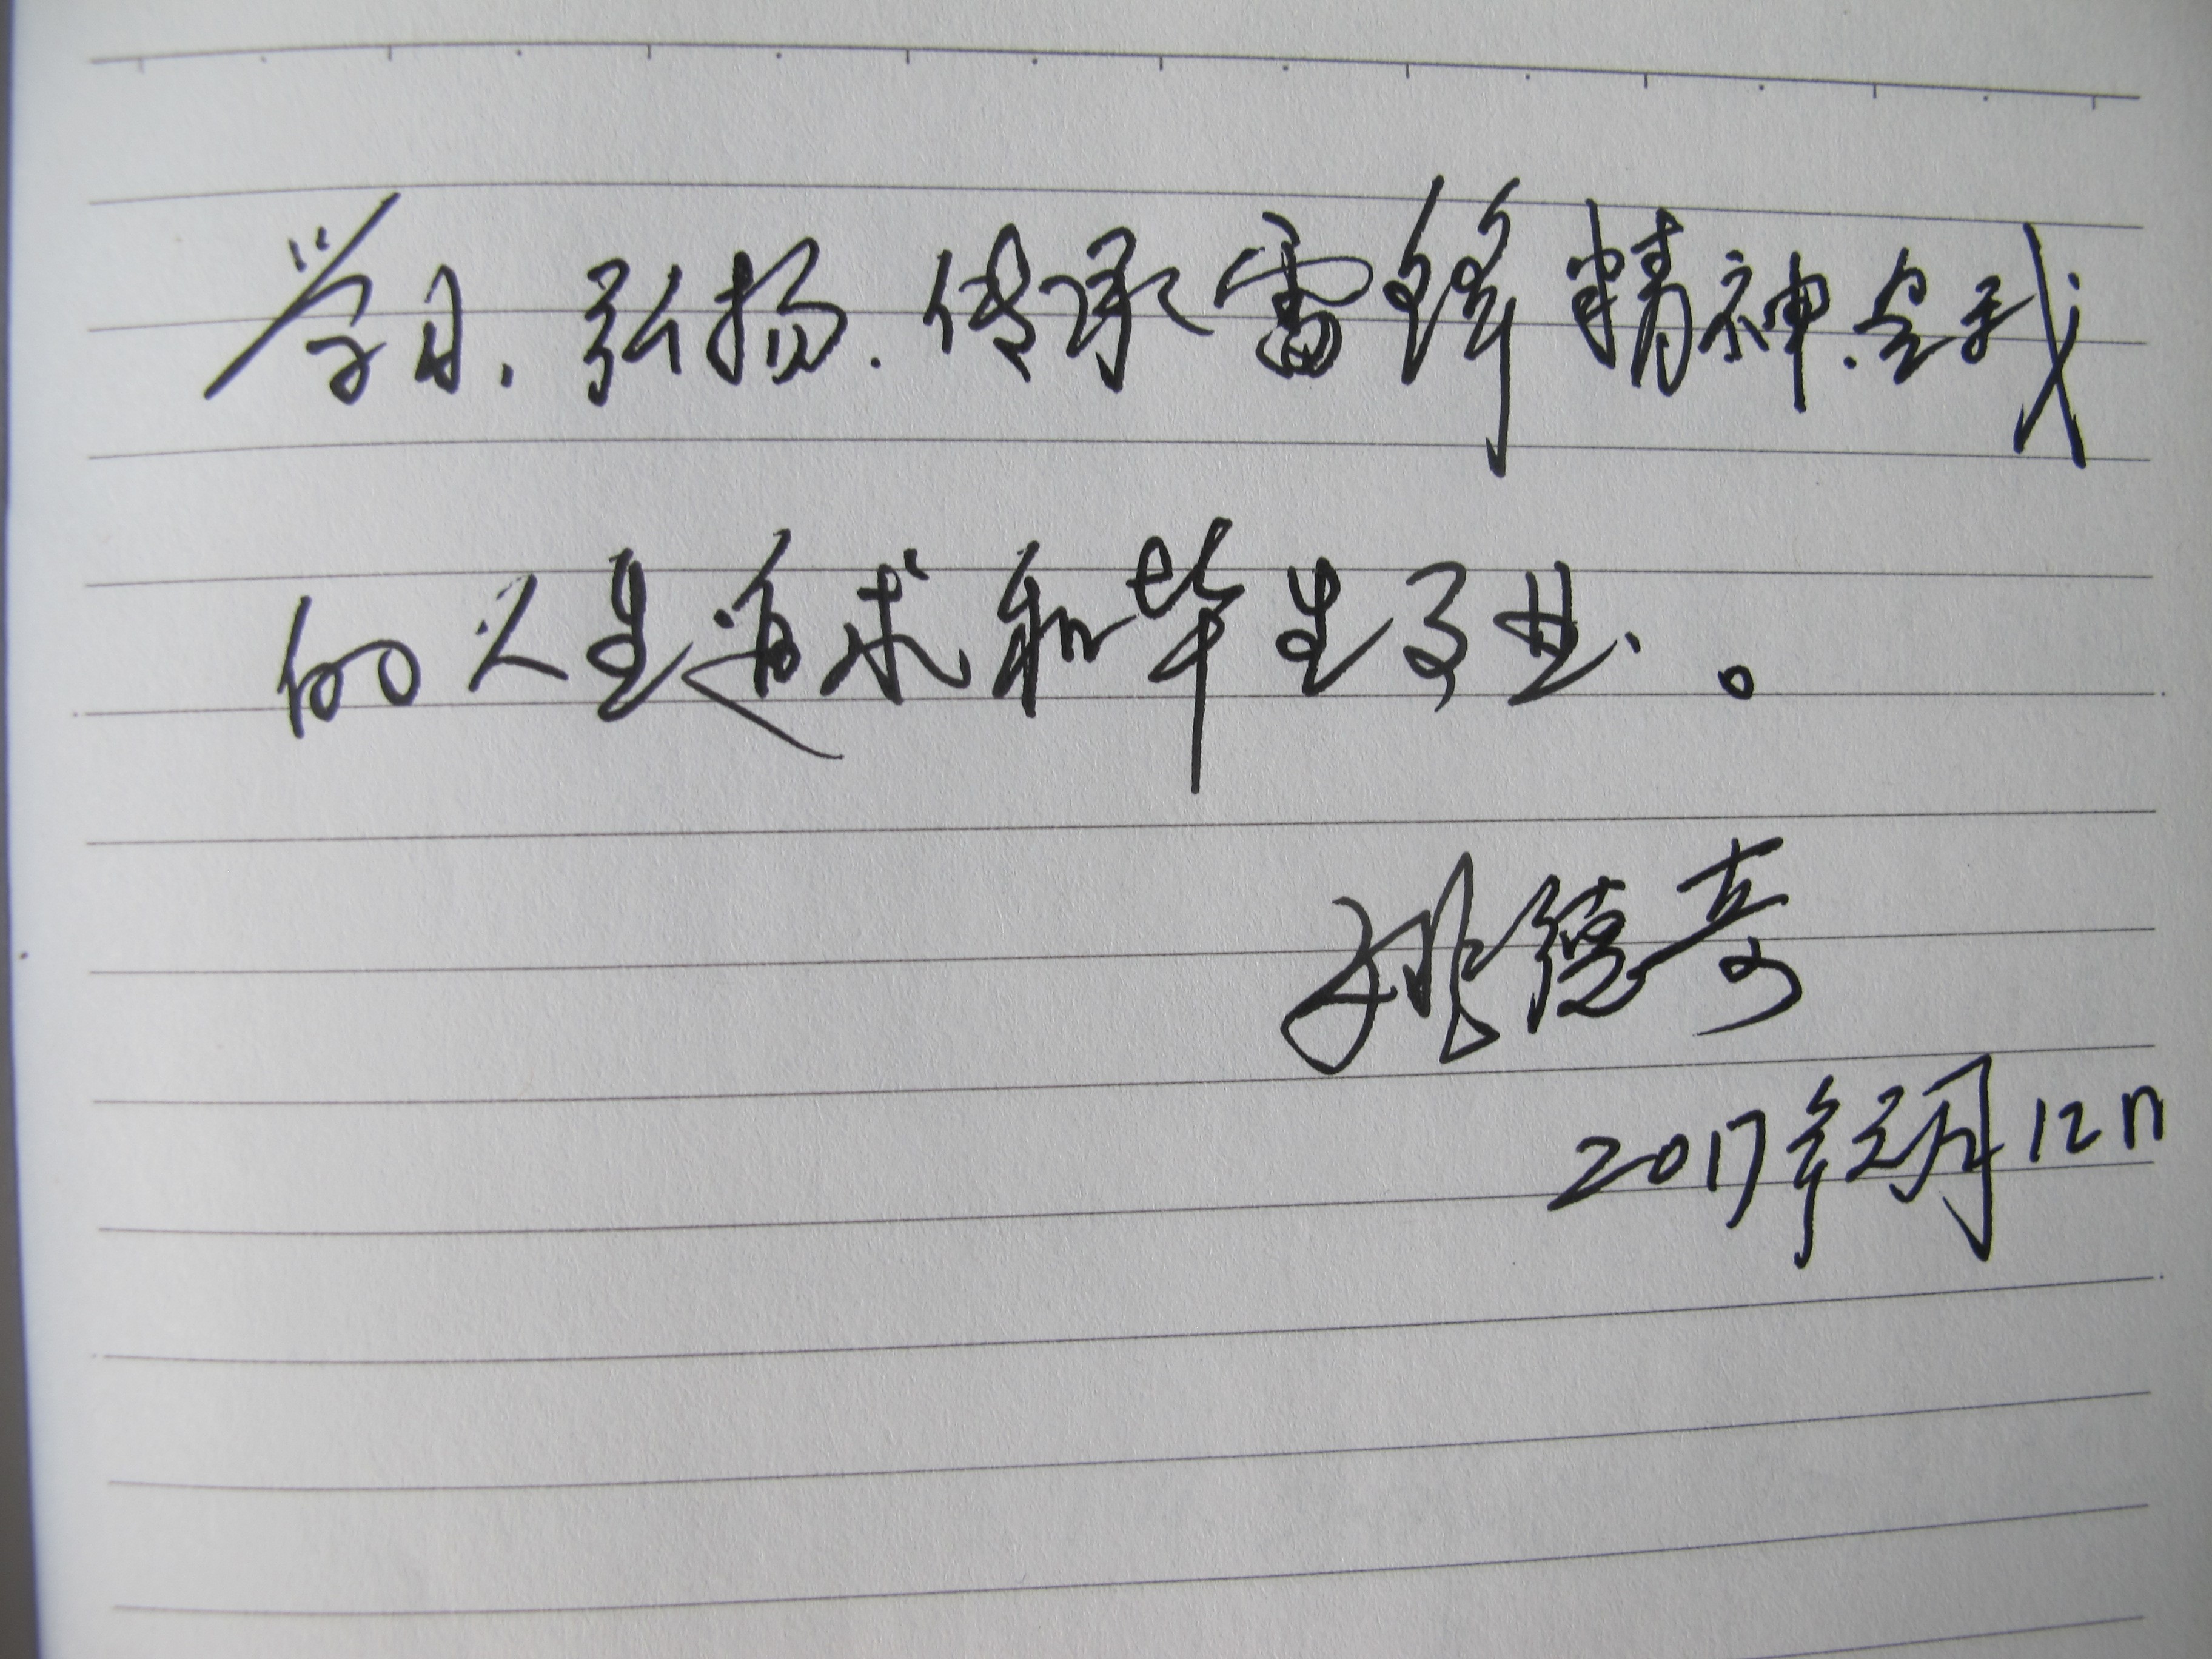 学习.弘扬.传承雷锋精神.是我
的人生追求和毕生事业.。
姚德奇
2017年元月12日